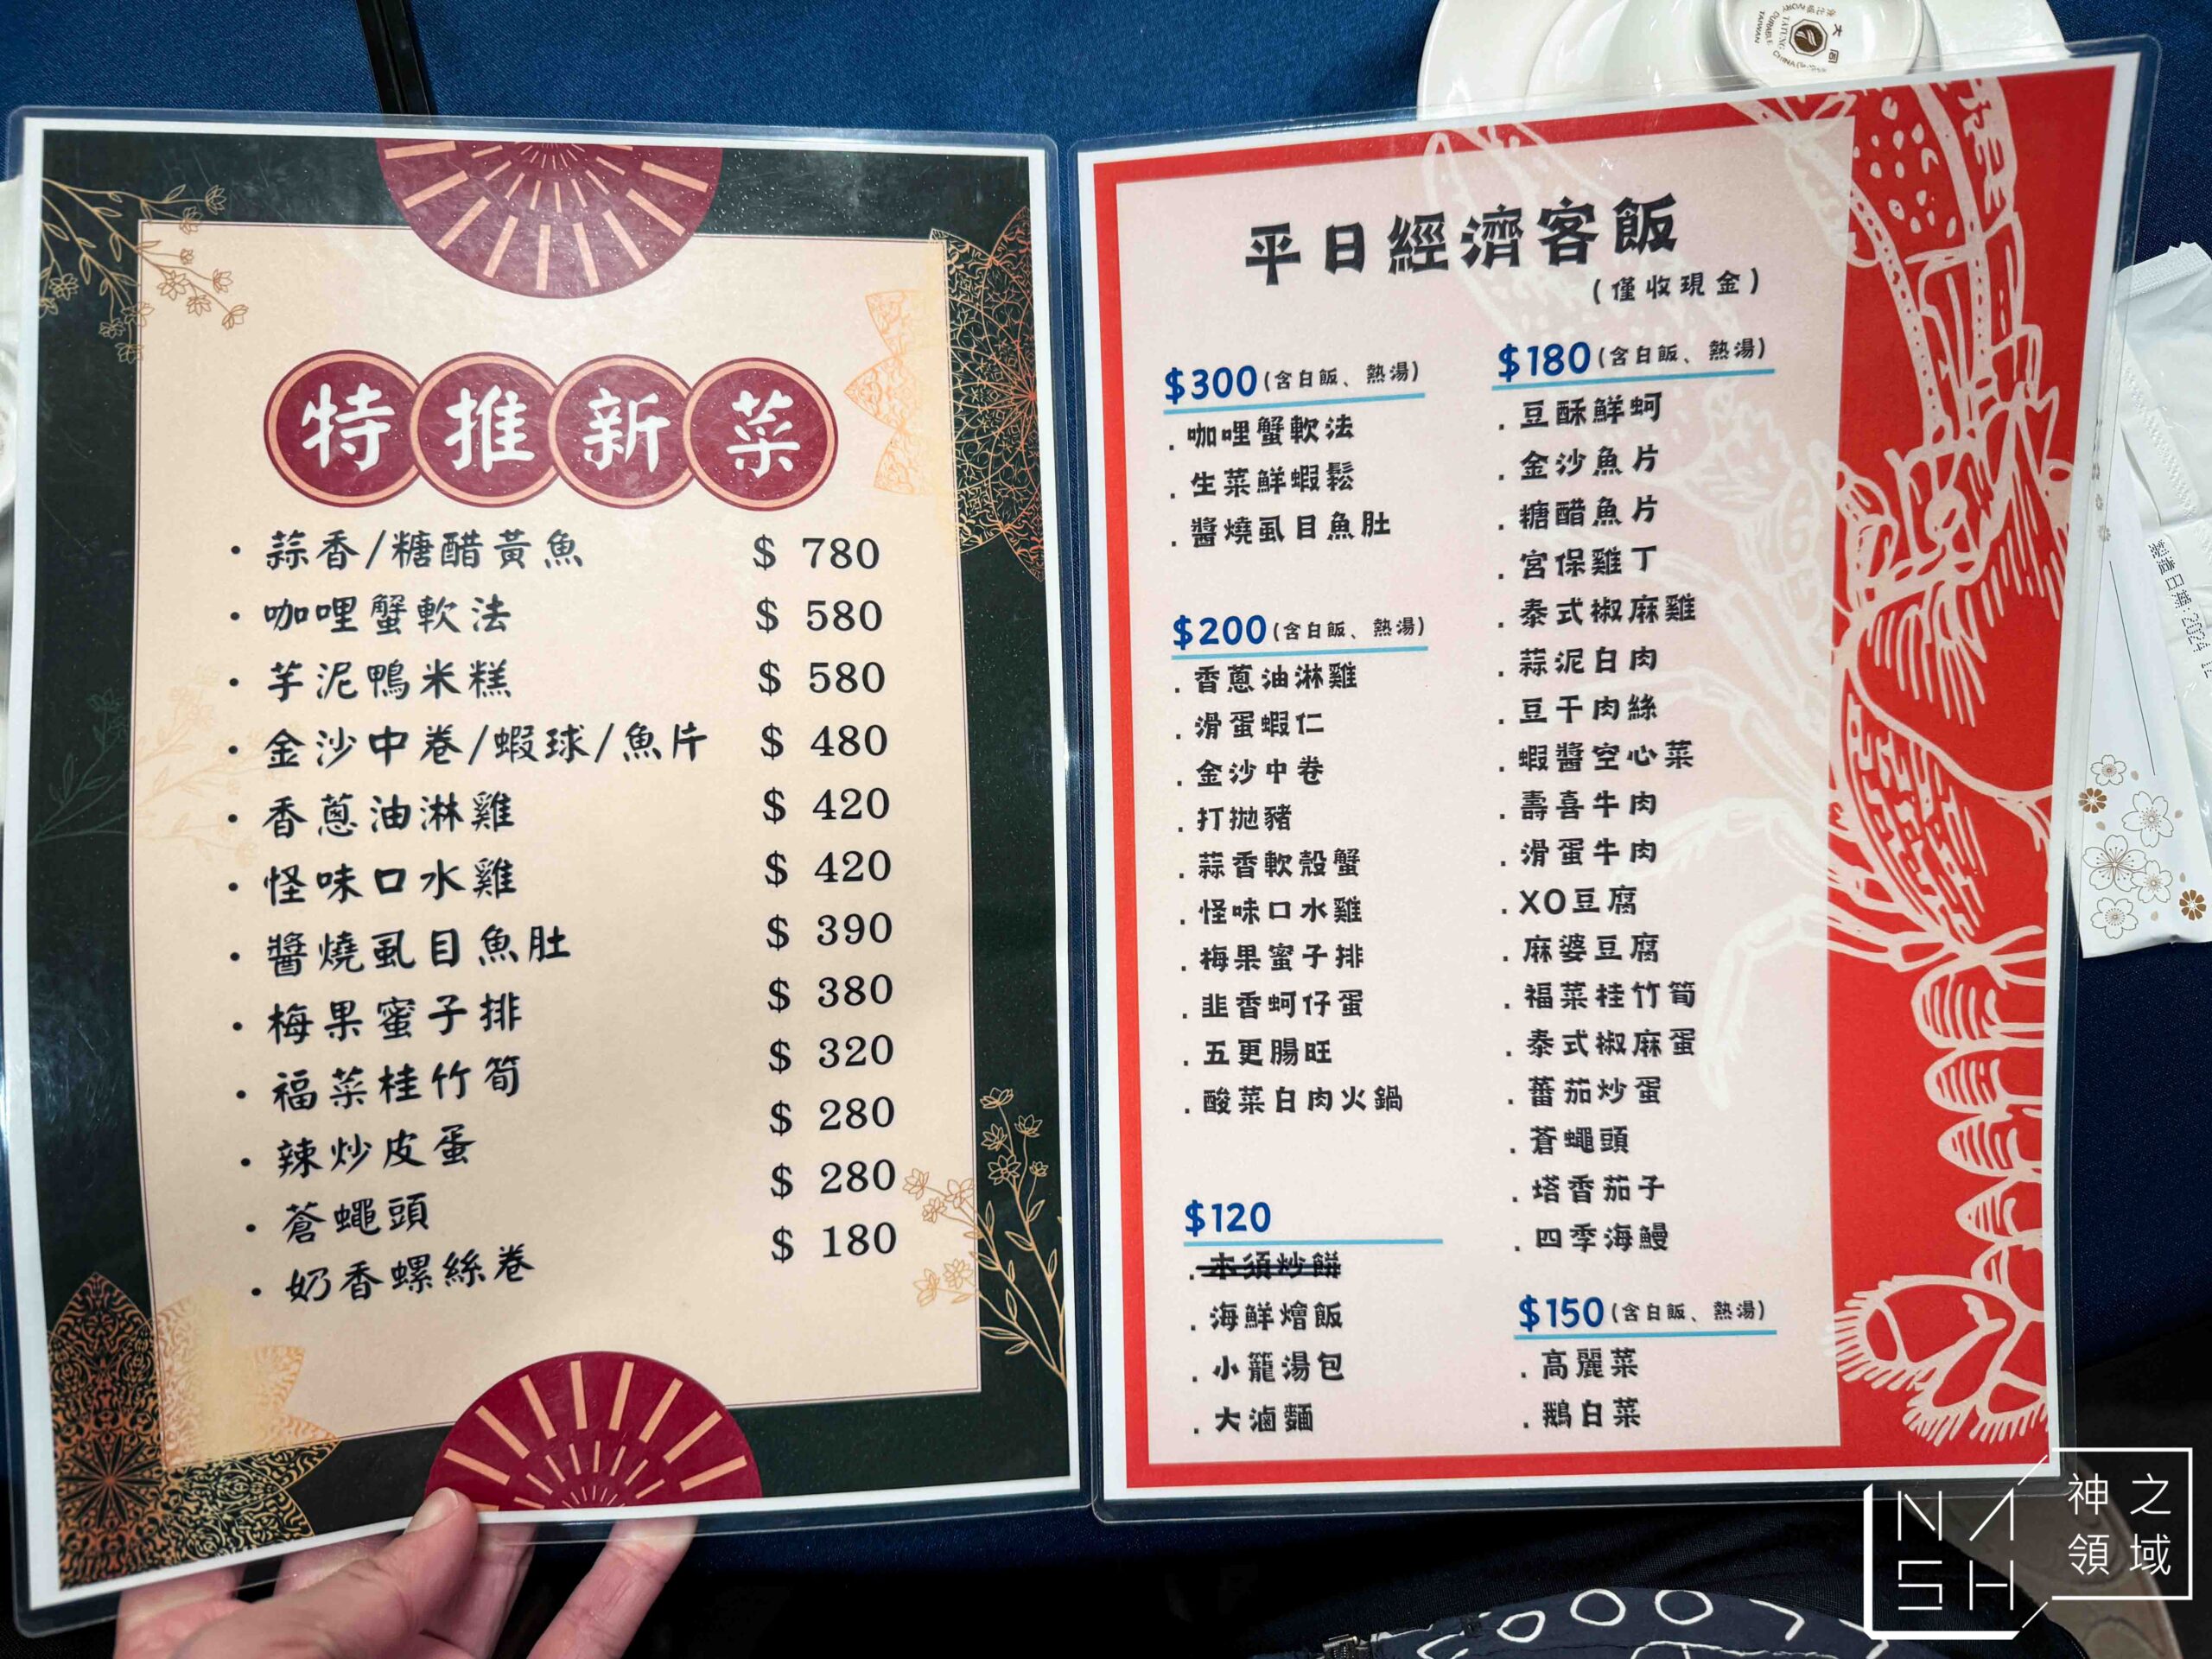 特推新菜
· 蒜香/糖醋黃魚 $ 780
· 咖哩蟹軟法 $ 580
· 芋泥鴨米糕 $ 580
· 金沙中卷/蝦球/魚片 $ 480
· 香蔥油淋雞 $ 420
· 怪味口水雞 $ 420
· 醬燒虱目魚肚 $ 390
· 梅果蜜子排 $ 380
· 福菜桂竹筍 $ 320
· 辣炒皮蛋 $ 280
· 蒼蠅頭 $ 280
· 奶香螺絲卷 $ 180
平日經濟客飯
(僅收現金)
$300(含白飯、熱湯)
. 咖哩蟹軟法
. 生菜鮮蝦鬆
. 醬燒虱目魚肚
$200(含白飯、熱湯)
. 香蔥油淋雞
. 滑蛋蝦仁
. 金沙中卷
. 打拋豬
. 蒜香軟殼蟹
. 怪味口水雞
. 梅果蜜子排
. 韭香蚵仔蛋
. 五更腸旺
. 酸菜白肉火鍋
$120
. 木須炒餅
. 海鮮燴飯
. 小籠湯包
. 大滷麵
$180(含白飯、熱湯)
. 豆酥鮮蚵
. 金沙魚片
. 糖醋魚片
. 宮保雞丁
. 泰式椒麻雞
. 蒜泥白肉
. 豆干肉絲
. 蝦醬空心菜
. 壽喜牛肉
. 滑蛋牛肉
. XO豆腐
. 麻婆豆腐
. 福菜桂竹筍
. 泰式椒麻蛋
. 蕃茄炒蛋
. 蒼蠅頭
. 塔香茄子
. 四季海鰻
$150(含白飯、熱湯)
. 高麗菜
. 鵝白菜
大同
TATUNG
CHINA
DURABLE
TAIWAN
製造日期:2024
NASH
神之領域